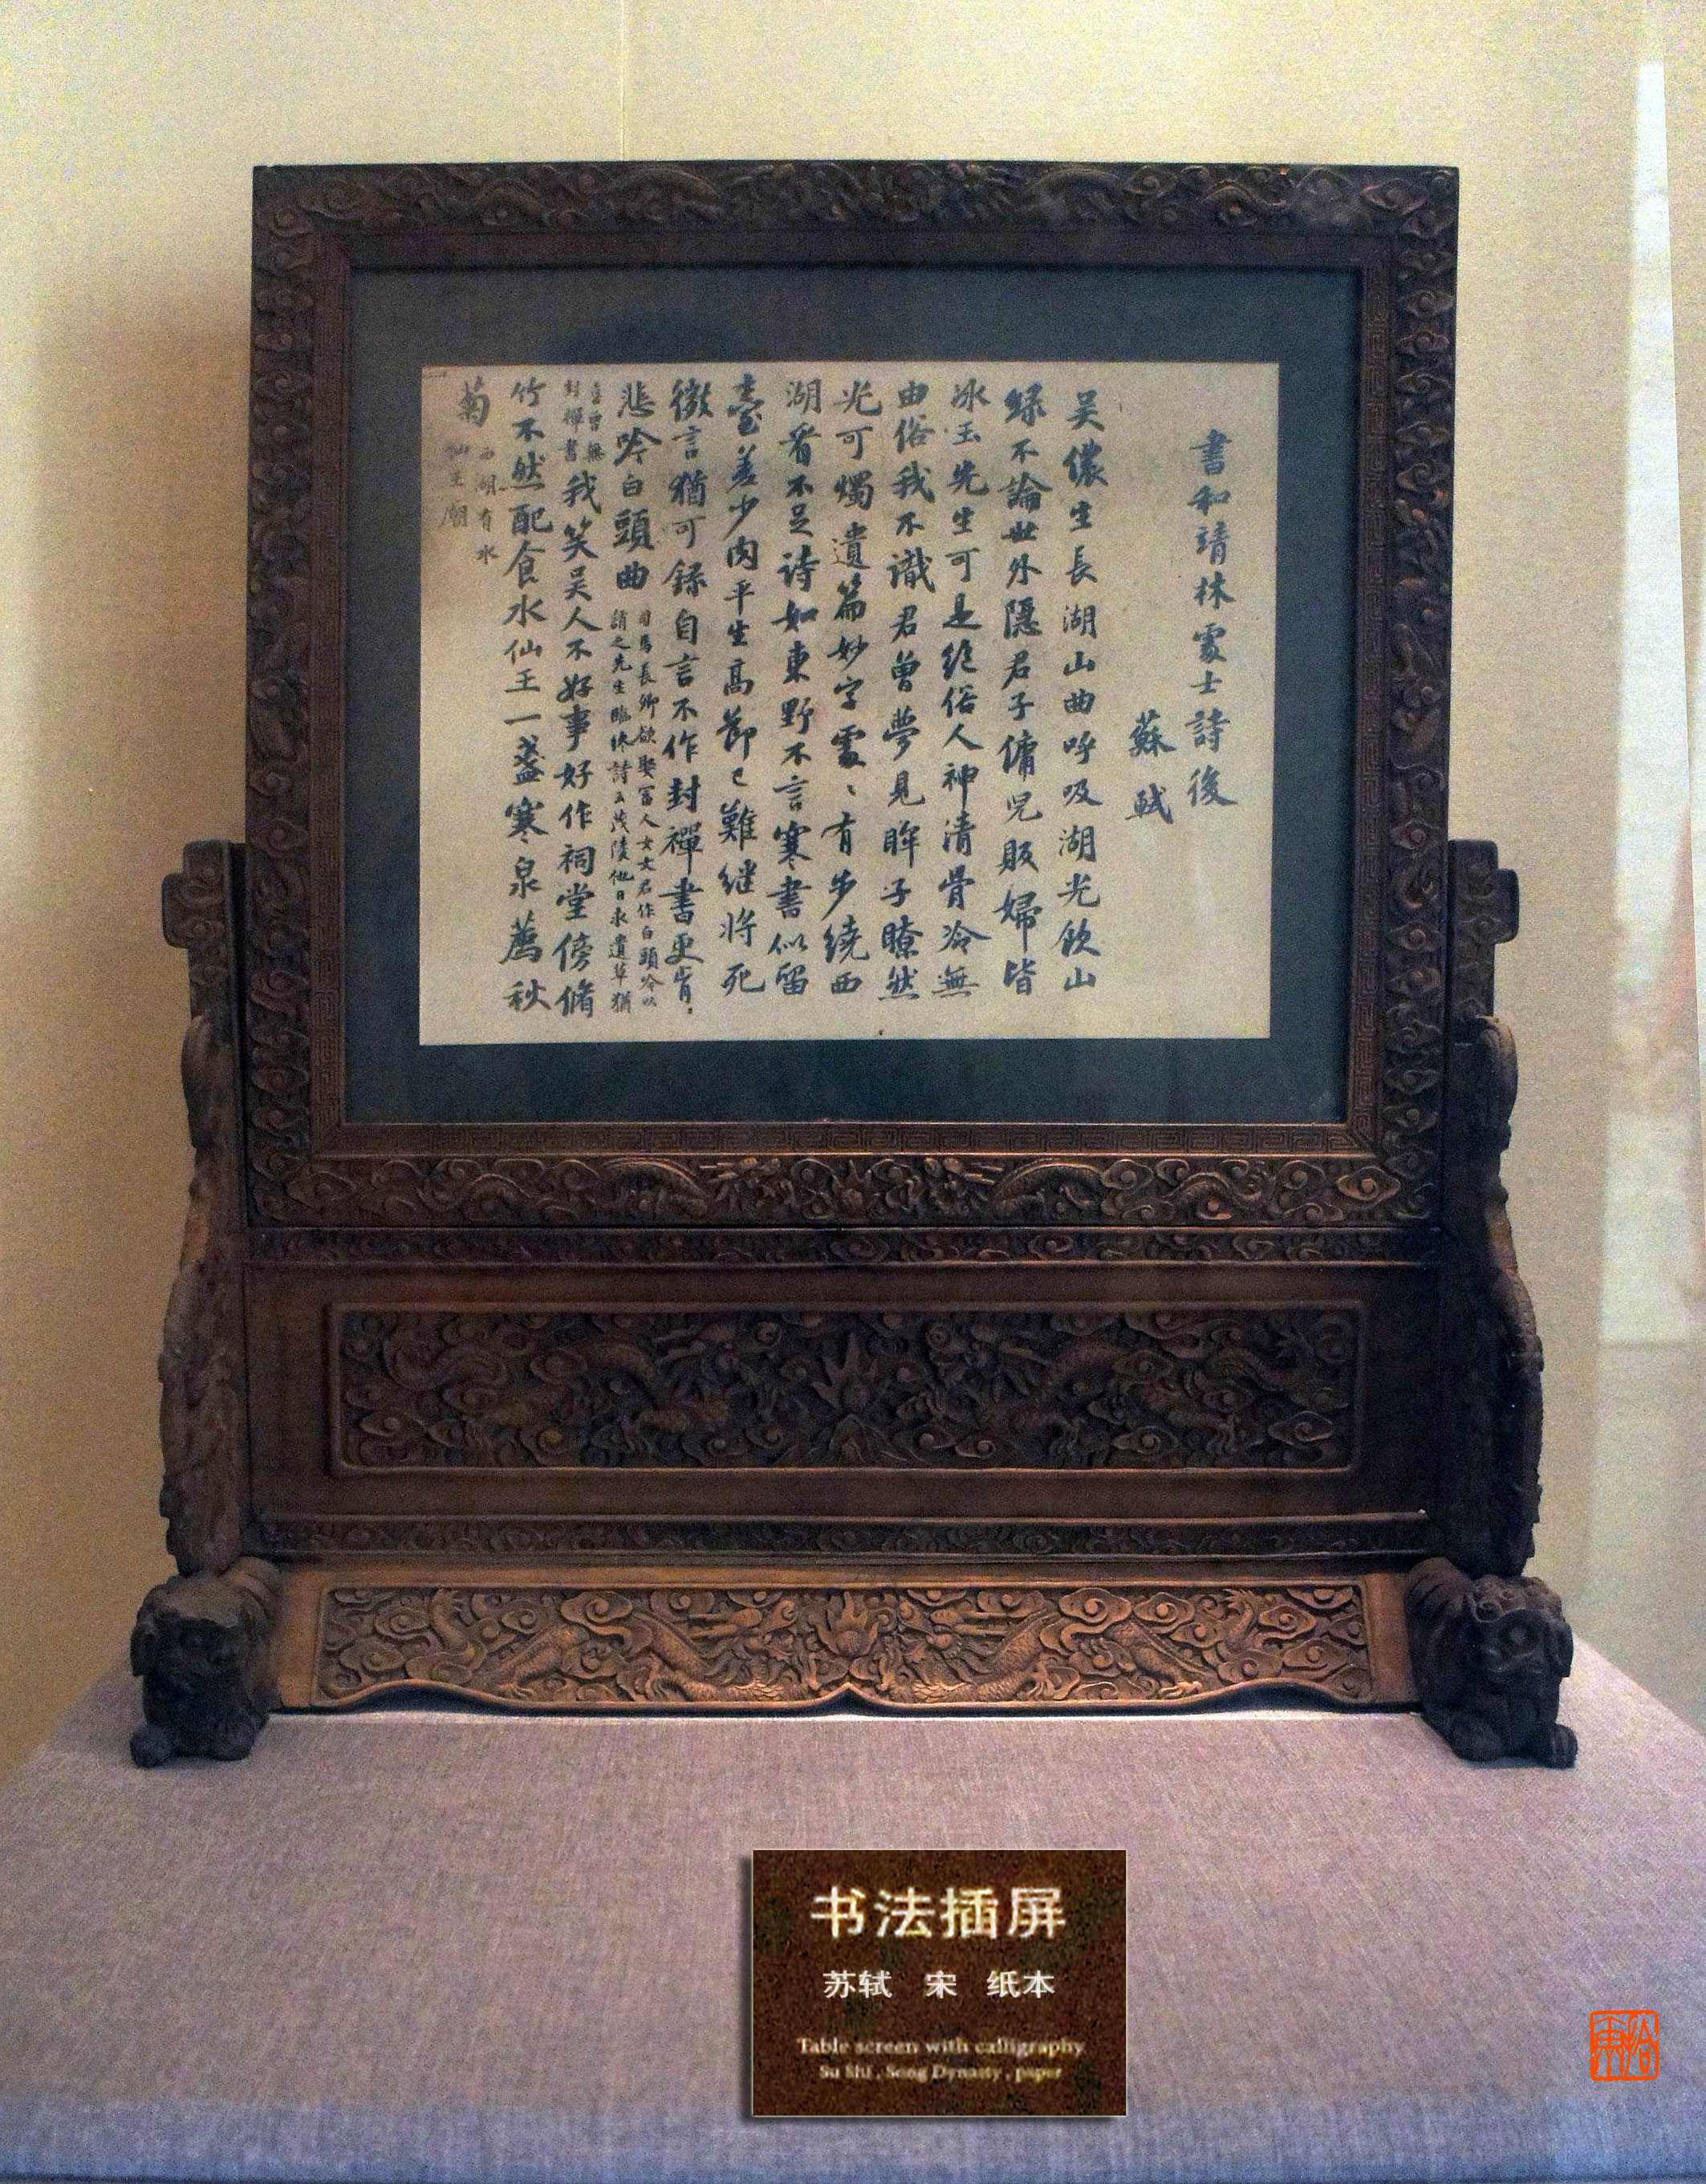 書和靖林處士詩後
蘇軾
吴儂生長湖山曲呼吸湖光飲山
緑不論世外隱君子傭兒販婦皆
冰玉先生可是絶俗人神清骨冷無
由俗我不識君曾夢見眸子瞭然
光可燭遺篇妙字處〻有步繞西
湖看不足詩如東野不言寒書似留
臺差少肉平生高節已難继將死
微言猶可録自言不作封禪書更肯
悲吟白頭曲
司馬長卿欲娶富人女文君作白頭吟以
誚之先生臨終詩云茂陵他日求遺草猶
喜曾無
封禪書
我笑吴人不好事好作祠堂傍脩
竹不然配食水仙王一盞寒泉薦秋
菊
西湖有水
仙王廟
书法插屏
苏轼 宋 纸本
Table screen with calligraphy
Su Shi , Song Dynasty , paper